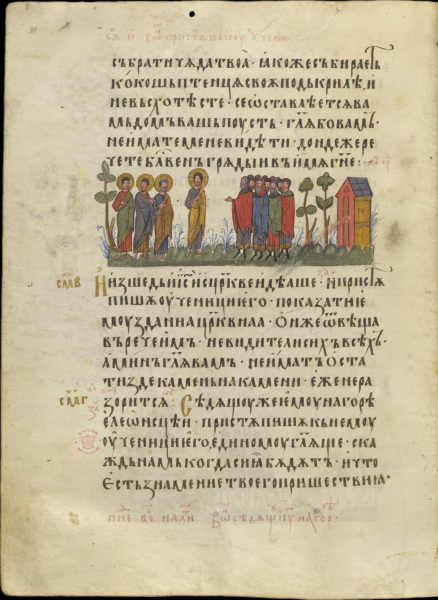 събрати чѧда твоа · ꙗкоже събирает
кокошь птенцѧ своѧ подь крилѣ, и
не въсхотѣсте · се ѡставлѣетсѧ ва
мь домъ вашь поусть · гл҃ѧ бо вамь ·
не имате мене видѣти · дондеже ре
чете бл҃вень грѧды и въ имѧ г҃не ·
И изшедь і҃с ис цр҃кве идѣаше · и пристѫ
пишѧ оученици его · показати е
моу зданиа цр҃квнаа · Онже ѿвѣща
въ рече имъ · не видите ли сихъ всѣхь
аминь гл҃ѧ вамь · не имать оста
ти зде камень на камени · еже не ра
зоритсѧ · Сѣдѧщоу же емоу на горѣ
елеѡнсцѣи · пристѫпишѧ кь немоу
оученици его, единомоу гл҃ѧще · ска
ждь намь когда сиа бѫдѫть · и что
есть знамение твоего пришествиа ·